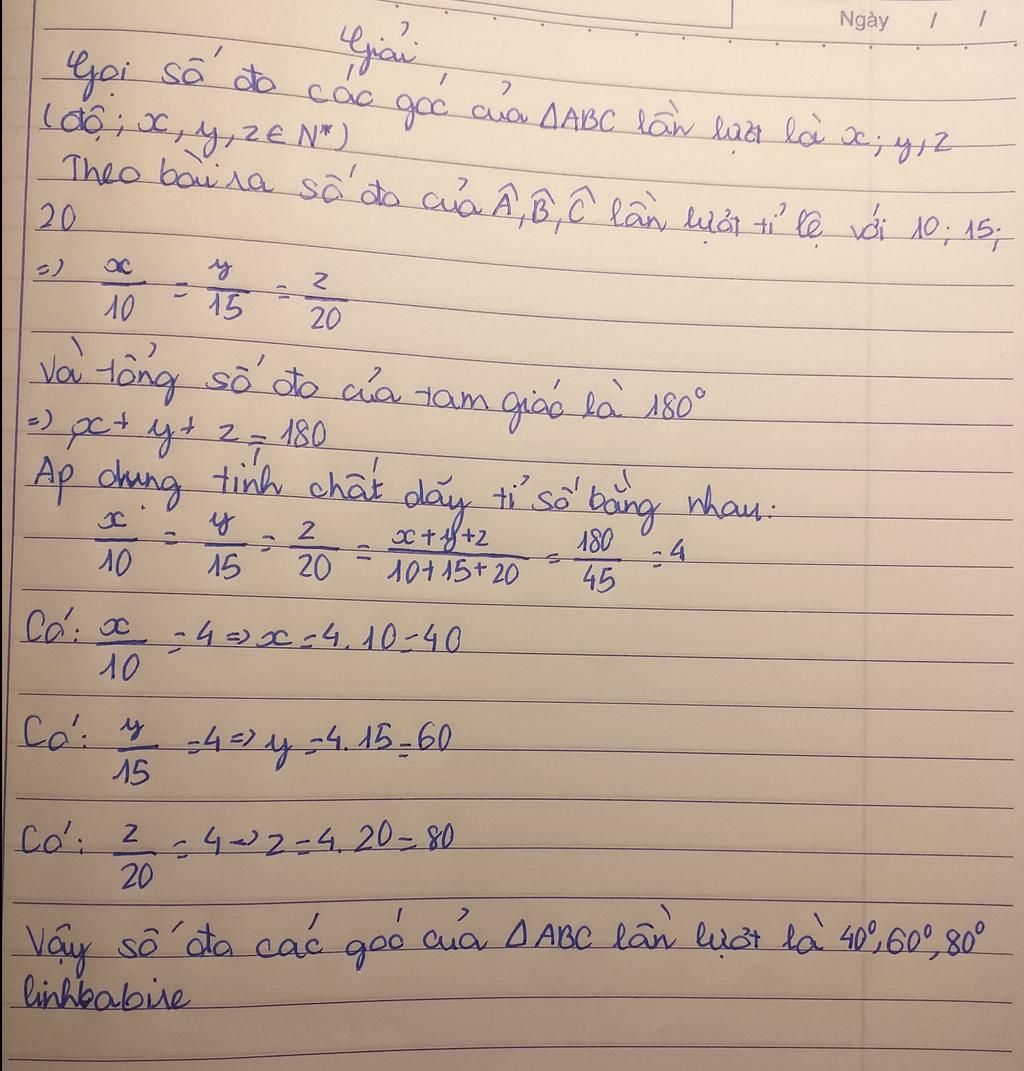 Ngày / /
Giải
Gọi số đo các góc của ΔABC lần lượt là x; y, z
(độ; x, y, z ∈ N*)
Theo bài ra số đo của Â, B̂, Ĉ lần lượt tỉ lệ với 10; 15;
20
=) x/10 = y/15 = z/20
Và tổng số đo của tam giác là 180°
=) x + y + z = 180
Áp dụng tính chất dãy tỉ số bằng nhau:
x/10 = y/15 = z/20 = x+y+z/10+15+20 = 180/45 = 4
Có: x/10 = 4 => x = 4. 10 = 40
Có: y/15 = 4 => y = 4. 15 = 60
Có: z/20 = 4 => z = 4. 20 = 80
Vậy số đo các góc của ΔABC lần lượt là 40°, 60°, 80°